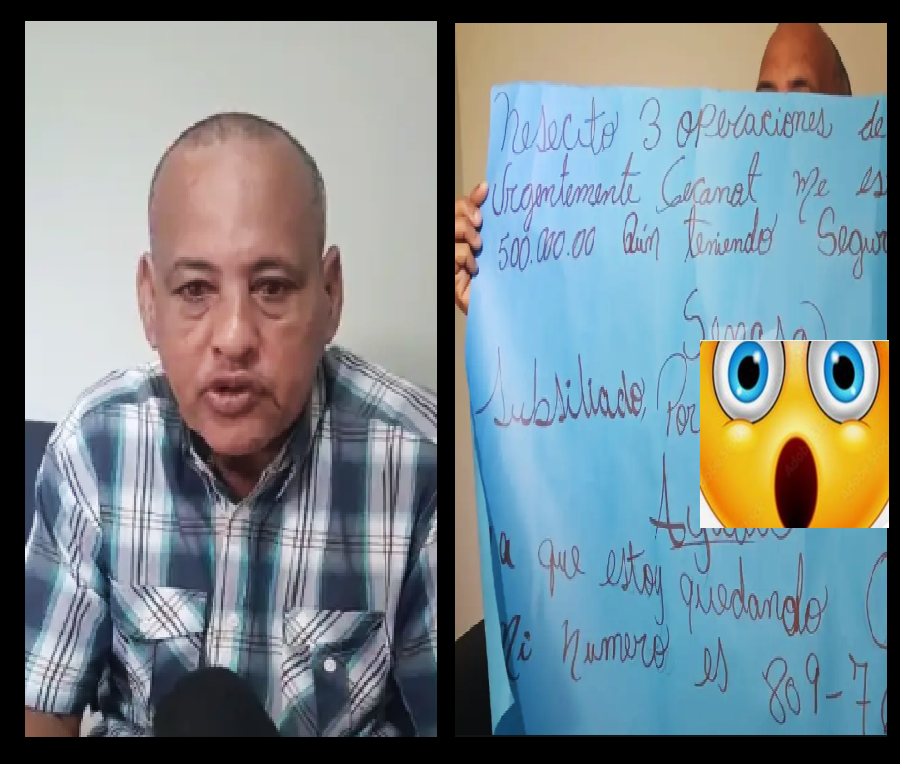 Nesecito 3 operaciones de
Urgentemente Cecanot me es
500.000.00 Aún teniendo Segur
Senasa
Subsiliado, Por
Ayuda
a que estoy quedando
Mi Numero es 809-7